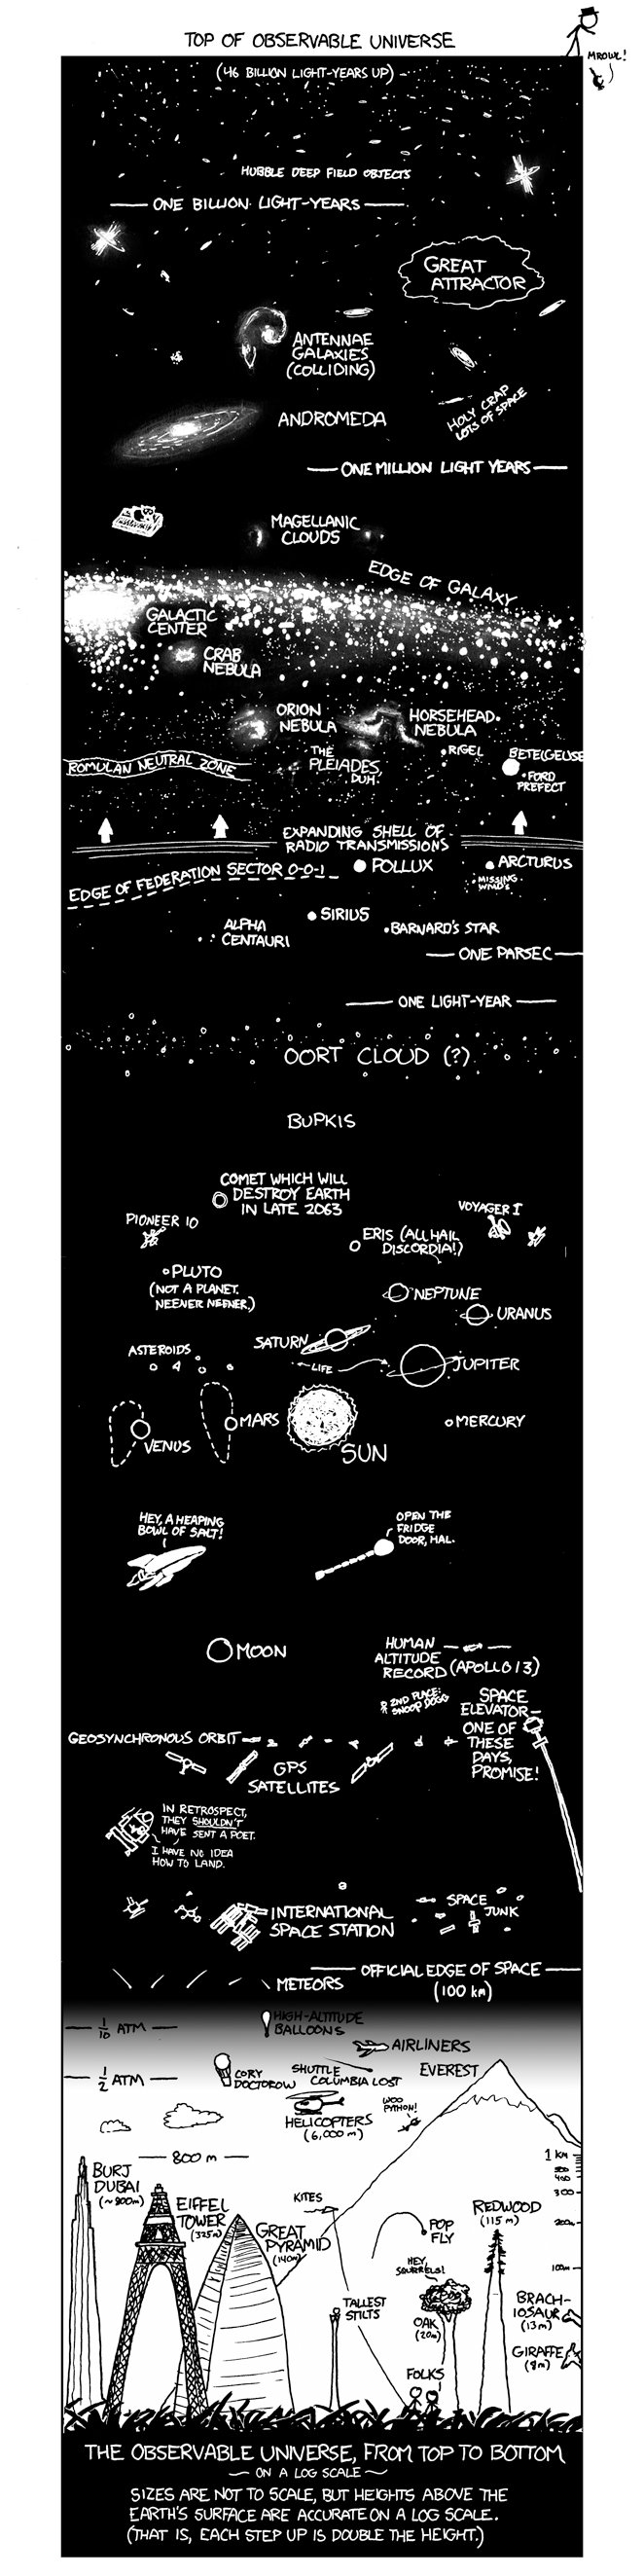 TOP OF OBSERVABLE UNIVERSE
MROWL!
(46 BILLION LIGHT-YEARS UP)
HUBBLE DEEP FIELD OBJECTS
ONE BILLION LIGHT-YEARS
GREAT
ATTRACTOR
ANTENNAE
GALAXIES
(COLLIDING)
HOLY CRAP
LOTS OF SPACE
ANDROMEDA
ONE MILLION LIGHT YEARS
MAGELLANIC
CLOUDS
EDGE OF GALAXY
GALACTIC
CENTER
CRAB
NEBULA
ORION
NEBULA
HORSEHEAD
NEBULA
THE
PLEIADES,
DUH.
RIGEL
BETELGEUSE
FORD
PREFECT
ROMULAN NEUTRAL ZONE
EXPANDING SHELL OF
RADIO TRANSMISSIONS
EDGE OF FEDERATION SECTOR 0-0-1
POLLUX
ARCTURUS
MISSING
WMDs
SIRIUS
ALPHA
CENTAURI
BARNARD'S STAR
ONE PARSEC
ONE LIGHT-YEAR
OORT CLOUD (?)
BUPKIS
COMET WHICH WILL
DESTROY EARTH
IN LATE 2063
PIONEER 10
VOYAGER I
ERIS (ALL HAIL
DISCORDIA!)
PLUTO
(NOT A PLANET.
NEENER NEENER.)
NEPTUNE
URANUS
SATURN
ASTEROIDS
LIFE
JUPITER
MARS
MERCURY
VENUS
SUN
HEY, A HEAPING
BOWL OF SALT!
OPEN THE
FRIDGE
DOOR, HAL.
MOON
HUMAN
ALTITUDE
RECORD (APOLLO 13)
2ND PLACE:
SNOOP DOGG
SPACE
ELEVATOR—
ONE OF
THESE
DAYS,
PROMISE!
GEOSYNCHRONOUS ORBIT
GPS
SATELLITES
IN RETROSPECT,
THEY SHOULDN'T
HAVE SENT A POET.
I HAVE NO IDEA
HOW TO LAND.
INTERNATIONAL
SPACE STATION
SPACE
JUNK
OFFICIAL EDGE OF SPACE
(100 km)
METEORS
1/10 ATM
HIGH-ALTITUDE
BALLOONS
AIRLINERS
1/2 ATM
CORY
DOCTOROW
SHUTTLE
COLUMBIA LOST
EVEREST
HELICOPTERS
(6,000 m)
WOO
PYTHON!
800 m
1 KM
500
400
300
200m
100m
BURJ
DUBAI
(~800m)
EIFFEL
TOWER
(325m)
GREAT
PYRAMID
(140m)
KITES
POP
FLY
REDWOOD
(115 m)
HEY,
SQUIRRELS!
TALLEST
STILTS
OAK
(20m)
BRACH-
IOSAUR
(13m)
GIRAFFE
(8m)
FOLKS
THE OBSERVABLE UNIVERSE, FROM TOP TO BOTTOM
— ON A LOG SCALE —
SIZES ARE NOT TO SCALE, BUT HEIGHTS ABOVE THE
EARTH'S SURFACE ARE ACCURATE ON A LOG SCALE.
(THAT IS, EACH STEP UP IS DOUBLE THE HEIGHT.)